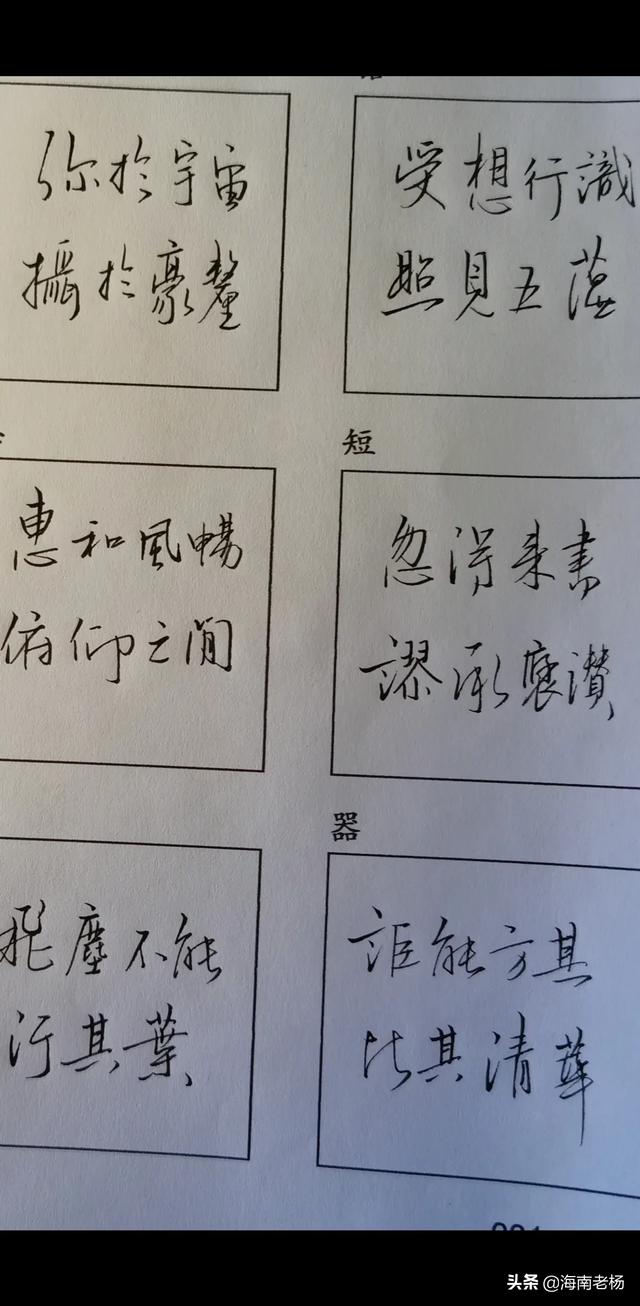 弥於宇宙
攝於豪釐
受想行識
照見五蕴
惠和風暢
俯仰之間
短
忽得来書
謬承褒讚
飛塵不能
污其葉
器
詎能方其
比其清華
头条 @海南老杨